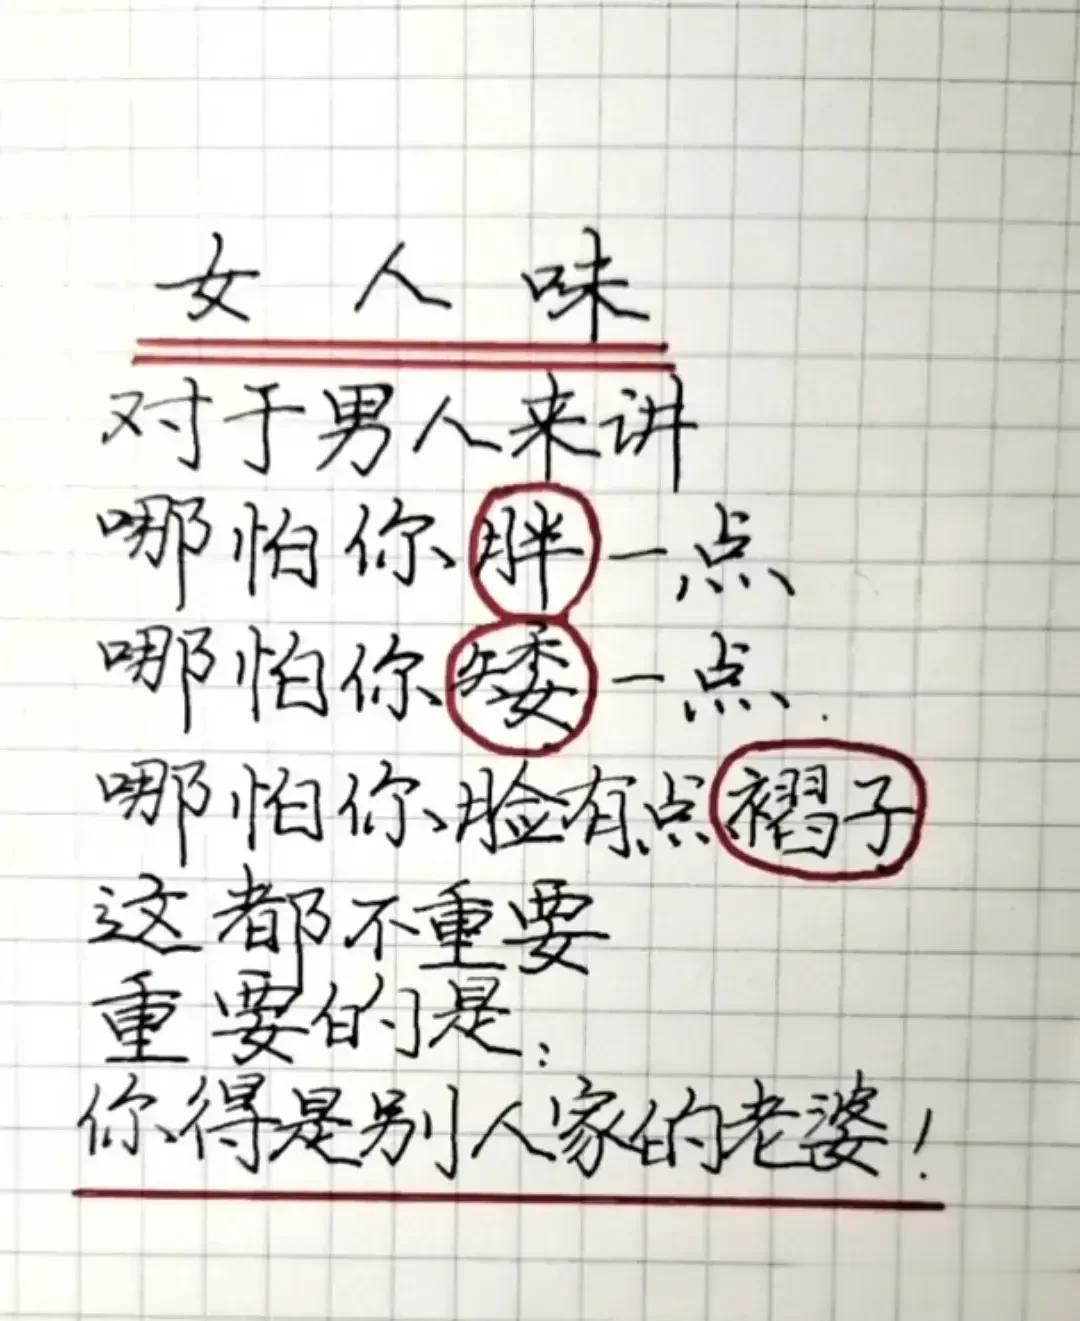 女人味
对于男人来讲
哪怕你胖一点、
哪怕你矮一点、
哪怕你脸有点褶子
这都不重要
重要的是:
你得是别人家的老婆!